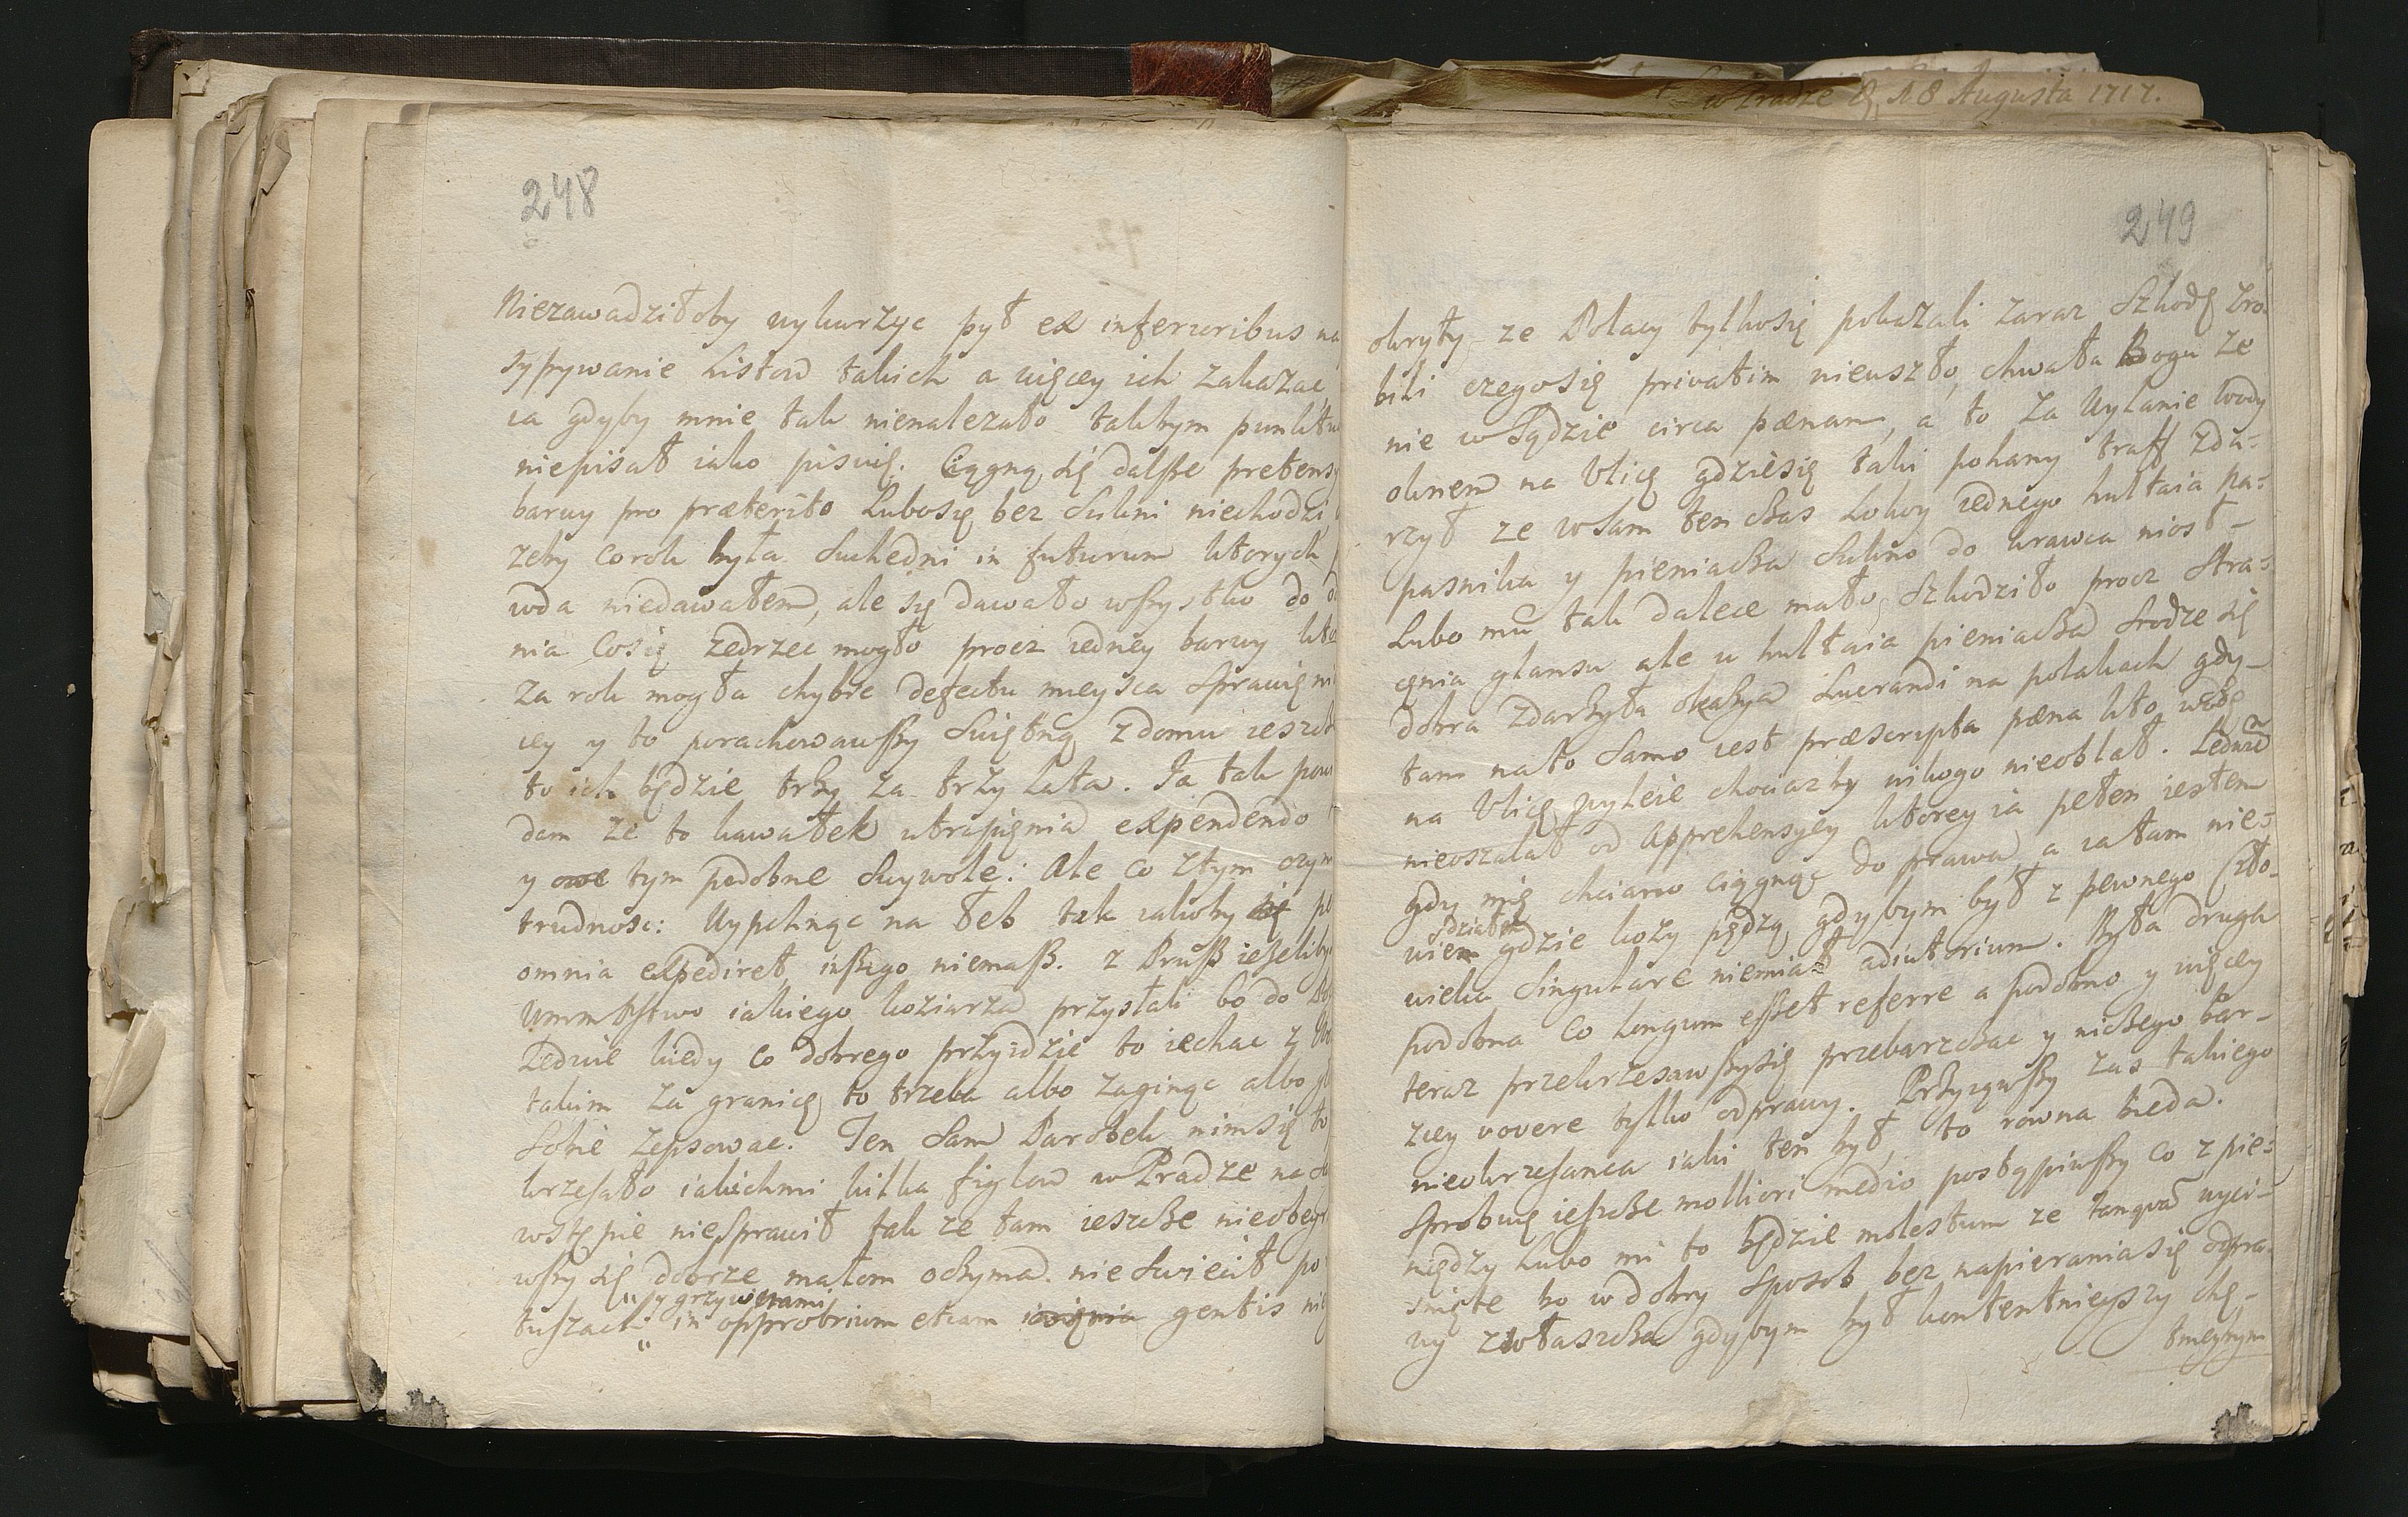 w Pradze d. 18 Augusta 1717.
248
Niezawadziłoby wykurzyc pył ex inferioribus na
sypywanie Listow takich a więcey ich zakazac,
ia gdyby mnie tak nienalezało takbym punktu
niepisał iako pisuię. Ciągną się dalsze pretens
barwy pro præterito Lubosię bez Sukni niechodzi
zeby co rok była Suchedni in futurum ktorych
wda niedawałem, ale się dawało wszystko do
nia Cosię zedrzec mogło procz iedney barwy kto
Za rok mogła chybic defectu mieysca Sprawię ni
iey y to porachowawszy Swiętną z domu ieszcz
to ich będzie trzy za trzy Lata. Ja tak powi
dam ze to kawałek utrapięnia expendendo
y owe tym podobne Swywole: Ale co z tym czyn
trudnosc: Wypchnąc na łeb tak iakoby się
omnia expediret, inszego niemasz. z Prusz iezeliby
Ummbstwo iakiego koziarza przysłali bo do
Ledwie kiedy co dobrego przyidzie to iechac z
takim za granicę to trzeba albo zaginąc albo
Sobie Zepsowac. Ten Sam Parobek nimsię to
krzesało iakichmi kilka figlow w Pradze na
wstępie niesprawił tak ze tam ieszcze nieobey
wszy się dobrze małom oczyma nie Swiecił po
y grzywnami
tuszach in opprobrium etiam gentis
249
okryty, ze Polacy tylkosię pokazali zaraz Szkodę zro-
bili czegosię privatim nieuszło, chwała Bogu Ze
nie w Sądzie circa pænam, a to Za Wylanie wody
oknem na Vlicę gdziesię taki pokany traff zda=
rzył ze wsam ten czas Lokoy iednego hultaia pa=
pasnika y pieniacza Sukno do krawca niosł-
Lubo mu tak dalece mało Szkodziło procz Stra=
cęnia glansu ale u hultaia pieniacza Srodze się
dobra zdarzyła okazya Lucrandi na polakach gdy-
tam nato Samo iest præscripta pæna kto wodę
na Vlicę wyleie chociazby nikogo nieoblał. Ledwie
nieoszalał od Apprehensyey ktorey ia pełen iestem
gdy mię chciano ciągnąc do prawa, a ia tam nie=
działem
wiem gdzie kozy pędzą gdybym był z pewnego Czło-
wieka Singulare niemiał adiutorium. Była druga
podobna co longum esset referre a podobno y więcey
teraz przekrzesawszysię przebarzczac y niczego bar-
ziey vovere tylko odprawy. Przyiąwszy zas takiego
nieokrzesanca iaki ten był, to rowna bieda.
Sprobuię ieszcze molliori medio postąpiwszy co z pie=
niędzy Lubo mi to będzie molestum ze tanqua wyci-
snięte bo w dobry Sposob bez napieraniasię odpra-
wy zwłaszcza gdybym był kontentnieyszy chę-
tnieybym